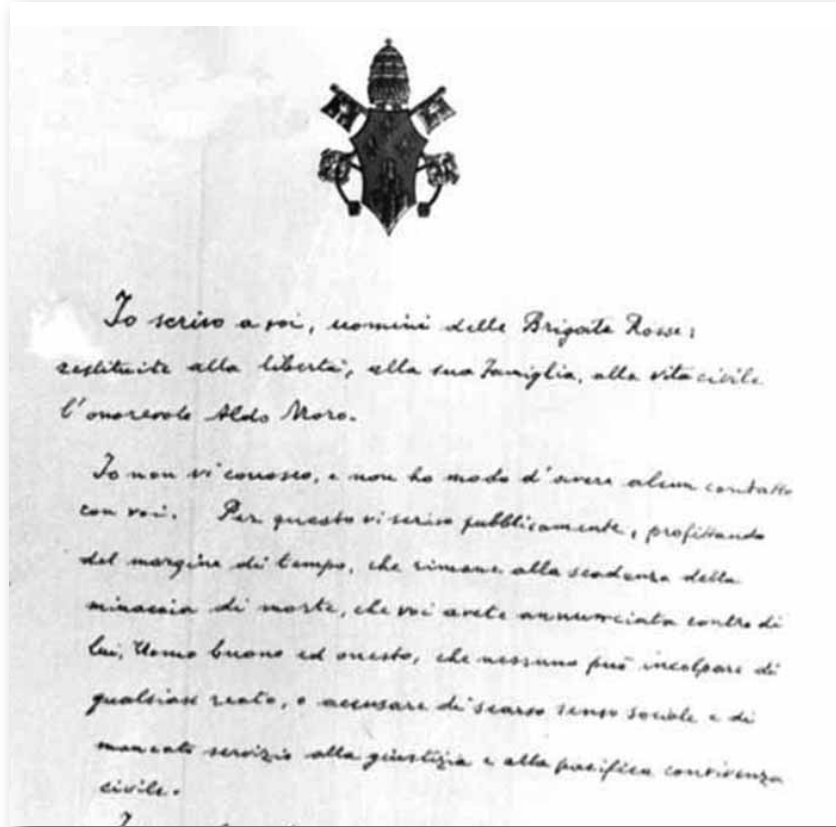 Io scrivo a voi, uomini delle Brigate Rosse:
restituite alla libertà, alla sua famiglia, alla vita civile
l'onorevole Aldo Moro.
Io non vi conosco, e non ho modo d'avere alcun contatto
con voi. Per questo vi scrivo pubblicamente, profittando
del margine di tempo, che rimane alla scadenza della
minaccia di morte, che voi avete annunciata contro di
lui, Uomo buono ed onesto, che nessuno può incolpare di
qualsiasi reato, o accusare di scarso senso sociale e di
mancato servizio alla giustizia e alla pacifica convivenza
civile.